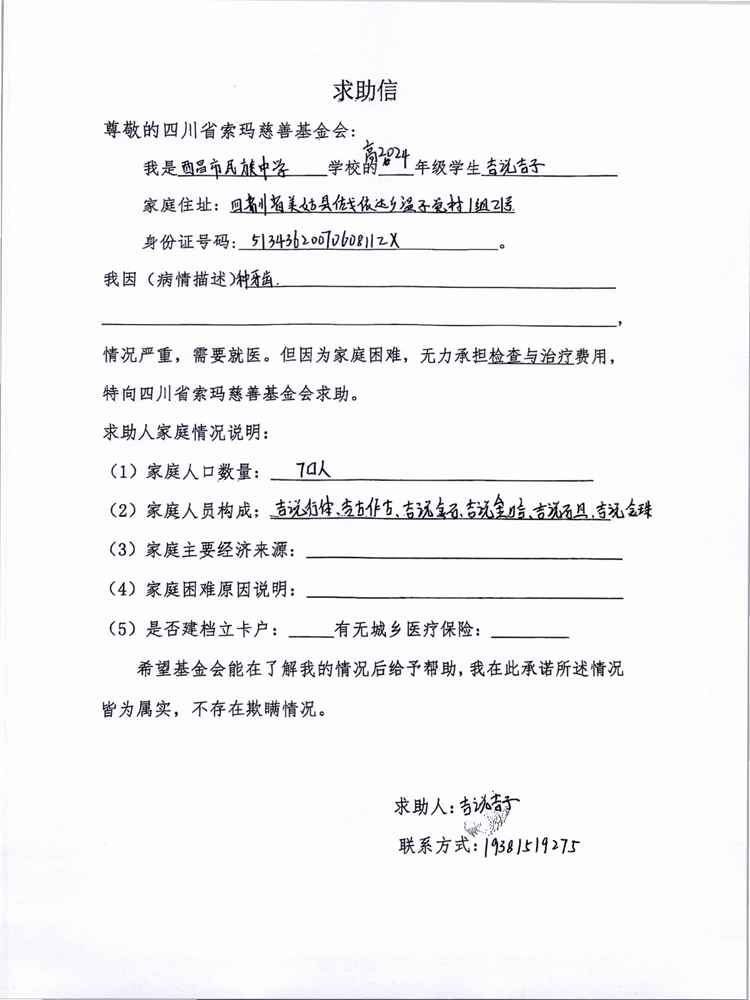 求助信
尊敬的四川省索玛慈善基金会：
我是西昌市民族中学学校的高2024年级学生吉说吉子
家庭住址：四川省美姑县依达乡村1组21号
身份证号码：51343620070608112X。
我因（病情描述）种牙齿.
，
情况严重，需要就医。但因为家庭困难，无力承担检查与治疗费用，
特向四川省索玛慈善基金会求助。
求助人家庭情况说明：
（1）家庭人口数量：7口人
（2）家庭人员构成：吉说、吉说、吉说、吉说
（3）家庭主要经济来源：
（4）家庭困难原因说明：
（5）是否建档立卡户：有无城乡医疗保险：
希望基金会能在了解我的情况后给予帮助，我在此承诺所述情况
皆为属实，不存在欺瞒情况。
求助人：吉说吉子
联系方式：19381519275